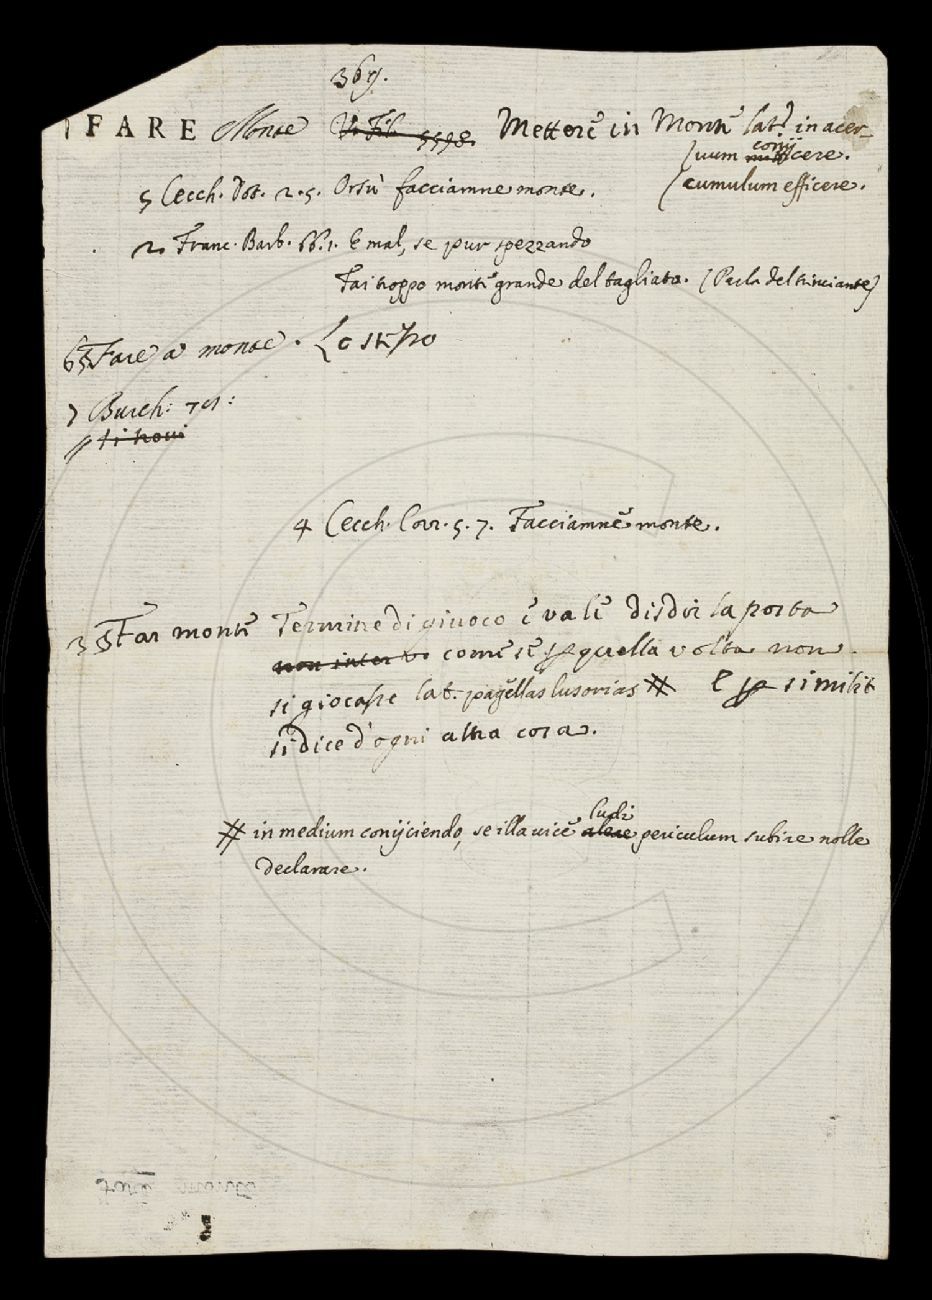 369.
FARE Monte Mettere in Monte lat. in acer-
uum conijcere.
cumulum efficere.
5 Cecch. Dot. 2. 5. Orsù facciamne monte.
2 Franc. Barb. 66. 1. E mal, se pur spezzando
Fai troppo monte grande del tagliato. (Parla del trinciante)
6 § Fare a monte. Lo stesso
7 Burch: 791:
ti trovi
4 Cecch. Corr. 5. 7. Facciamne monte.
3 § Far monte Termine di giuoco e vale disdir la posta
come se p quella volta non
si giocasse lat. pagellas lusorias # e p similit
si dice d'ogni altra cosa.
# in medium conijciendo, se illa vice ludi periculum subire nolle
declarare.